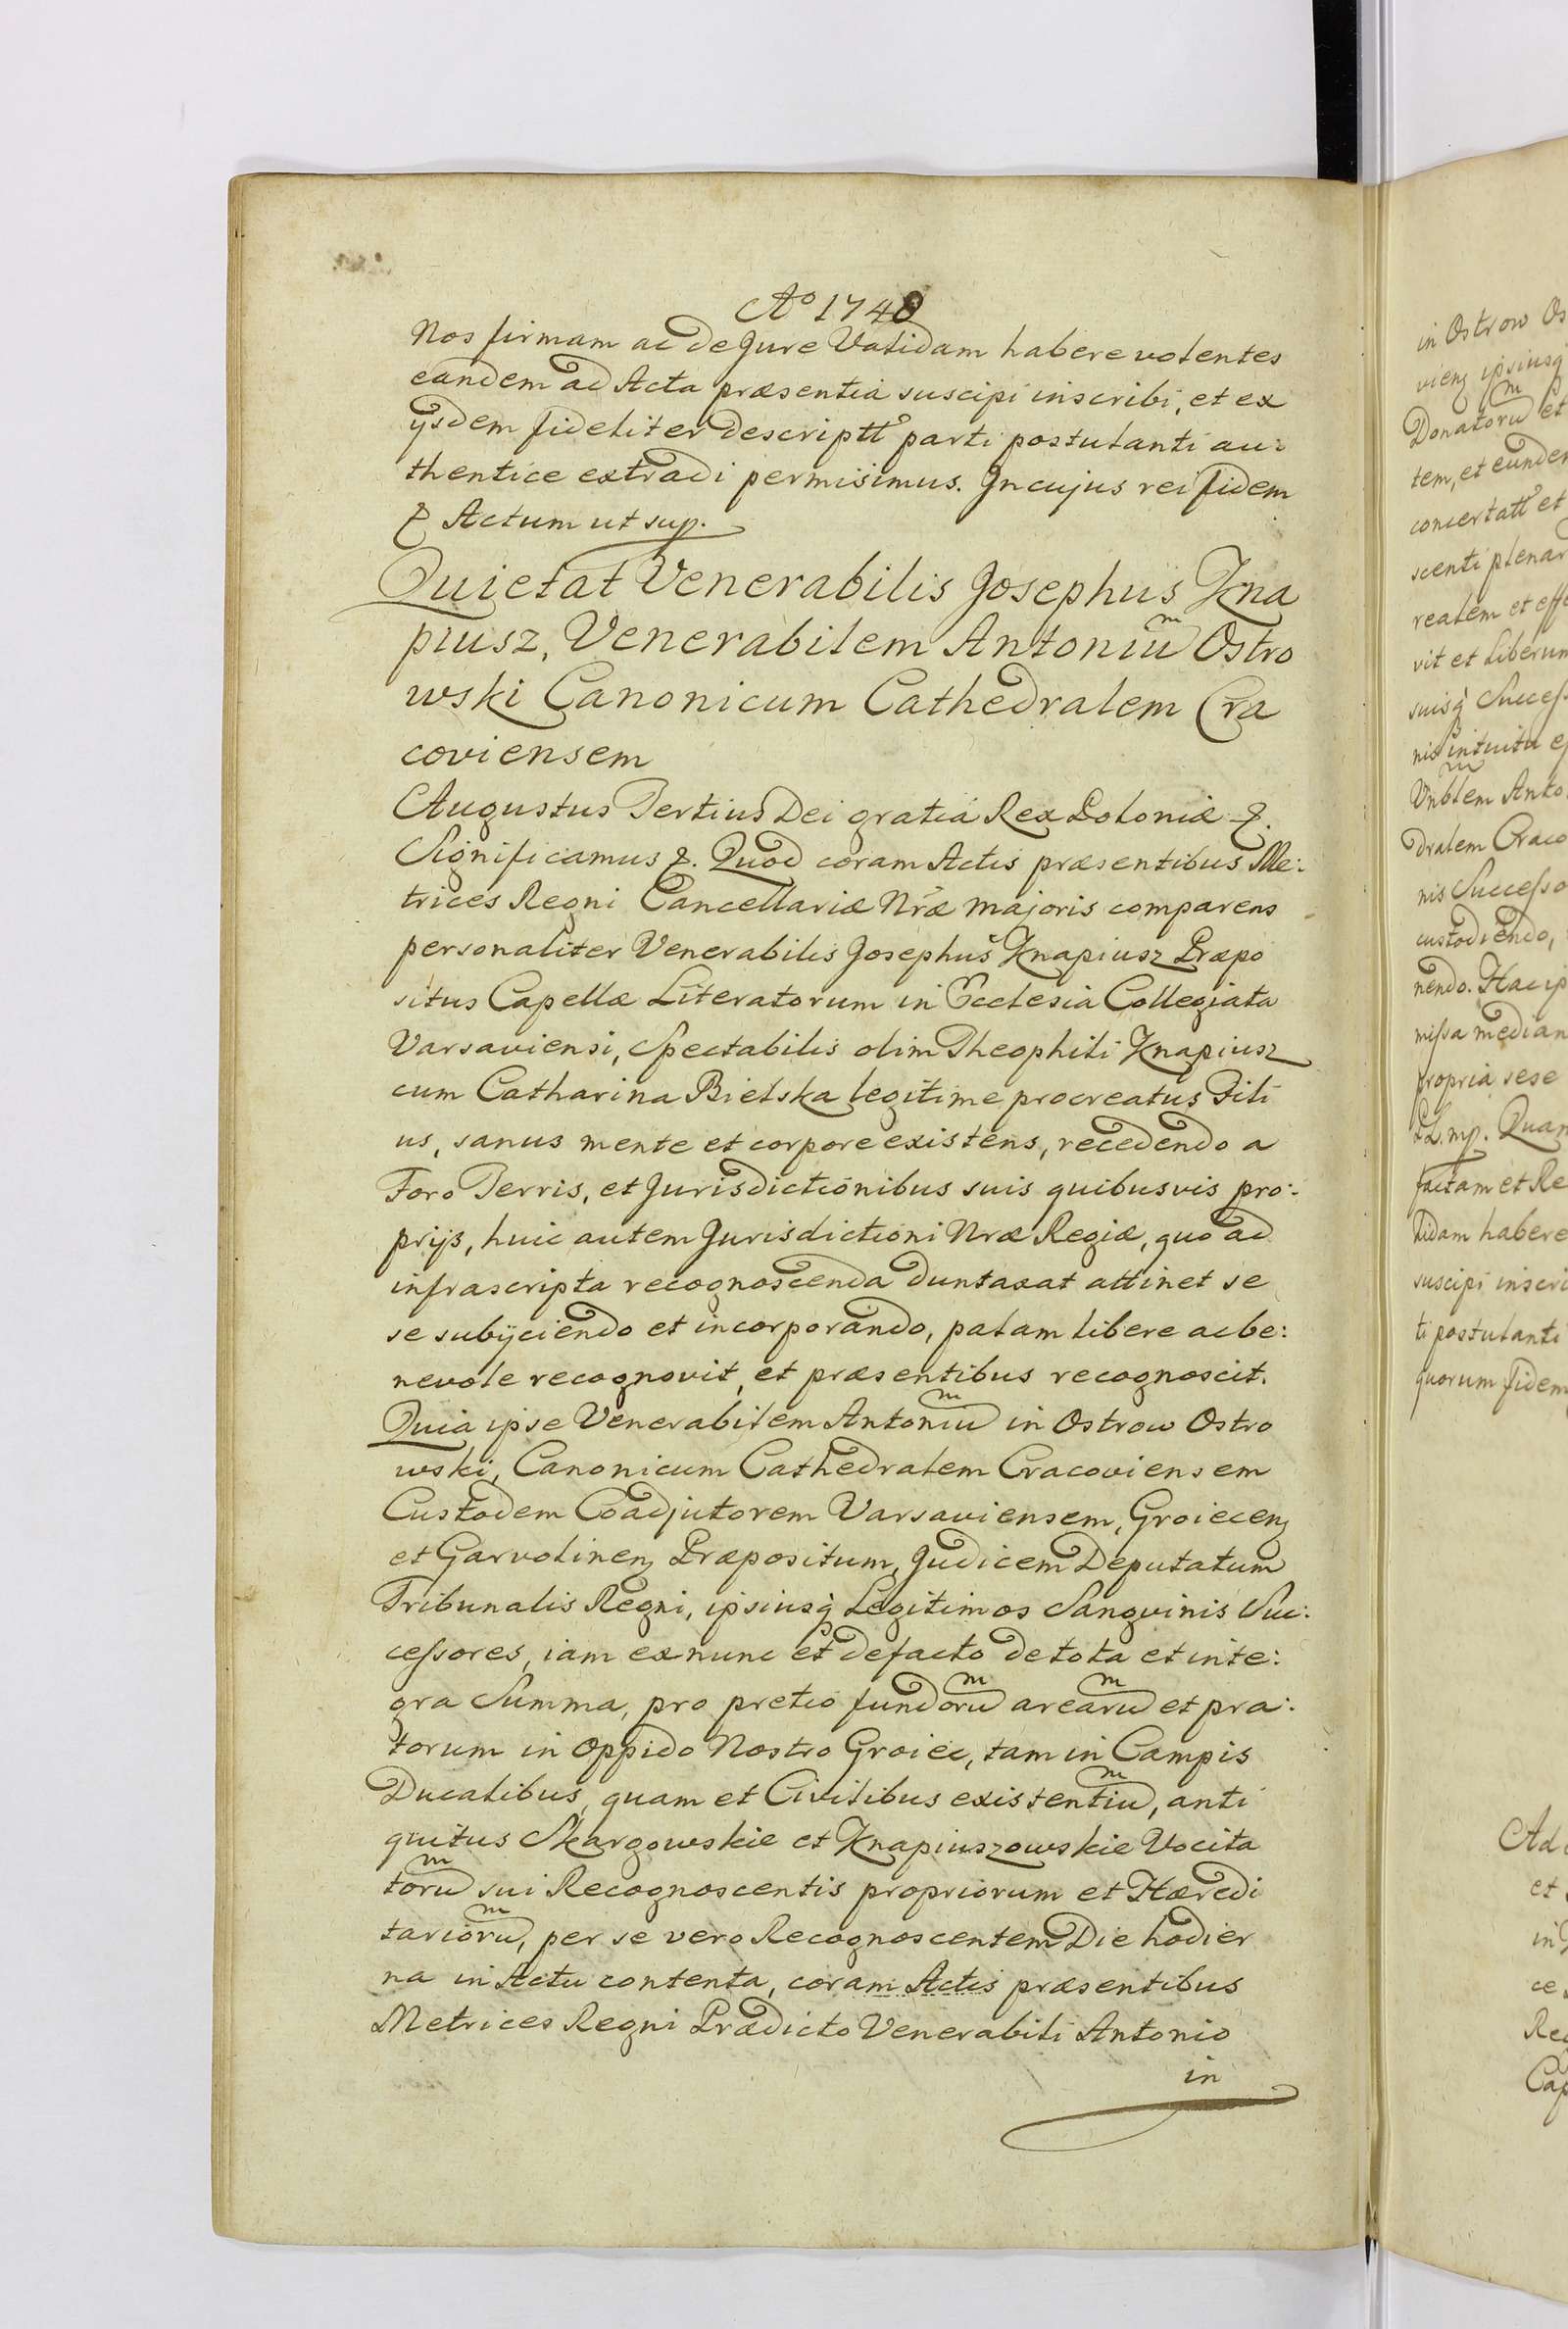 Aº 1748
Nos firmam ac de Jure Validam habere volentes
eandem ad Acta præsentia suscipi inscribi, et ex
ijsdem fideliter descriptt parti postulanti au:
thentice extradi permisimus. In cujus rei fidem
& Actum ut sup.
Quietat Venerabilis Josephus Kna
piusz, Venerabilem Antoniũ Ostro
wski Canonicum Cathedralem Cra
coviensem
Augustus Tertius Dei gratia Rex Poloniæ &.
Significamus &. Quod coram Actis præsentibus Me:
trices Regni Cancellariæ Nræ majoris comparens
personaliter Venerabilis Josephus Knapiusz Præpo
situs Capellæ Literatorum in Ecclesia Collegiata
Varsaviensi, Spectabilis olim Theophili Knapiusz
cum Catharina Bielska legitime procreatus Fili
us, sanus mente et corpore existens, recedendo a
Foro Terris, et Jurisdictionibus suis quibusvis pro:
prijs, huic autem Jurisdictioni Nræ Regiæ, quo ad
infrascripta recognoscenda duntaxat attinet se
se subijciendo et incorporando, palam libere ac be:
nevole recognovit, et præsentibus recognoscit.
Quia ipse Venerabilem Antoniũ in Ostrow Ostro
wski, Canonicum Cathedralem Cracoviensem
Custodem Coadjutorem Varsaviensem, Groiecenz
et Garvolinenz Præpositum, Judicem Deputatum
Tribunalis Regni, ipsiusq Legitimos Sanguinis Suc:
cessores, iam ex nunc et defacto de tota et inte:
gra Summa, pro pretio fundorũ arearũ et pra:
torum in Oppido Nostro Groiec, tam in Campis
Ducalibus, quam et Civilibus existentiũ, anti
quitus Skargowskie et Knapiuszowskie Vocita
torũ sui Recognoscentis propriorum et Hæredi
tariorũ, per se vero Recognoscentem Die hodier
na in Actu contenta, coram Actis præsentibus
Metrices Regni Prædicto Venerabili Antonio
in
in Ostrow Os
vienz ipsiusq
Donatorũ et
tem, et eunden
concertatt et
scenti plenar
realem et effe
vit et Liberum
suisq Success
nis intuitu e
Vnblem Anto
dralem Craco
nis Successo
custodiendo,
nendo. Hac ip
missa median
propria sese
LL. mp. Quam
factam et Re
lidam habere
suscipi inscri
ti postulanti
quorum fidem
Ad
et
in
ce
Reg
Cap